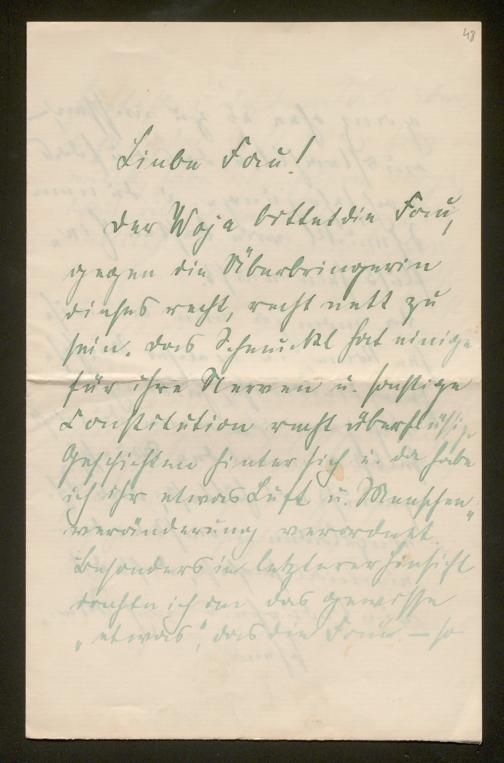 48
Liebe Frau!
Der Woja bittet die Frau,
gegen die Überbringerin
dieses recht, recht nett zu
sein. Das Schnuckel hat einige
für ihre Nerven u. sonstige
Constitution recht überflüssige
Geschichten hinter sich u. da habe
ich ihr etwas Luft u. Menschen-
veränderung verordnet.
Besonders in letzterer Hinsicht
dachte ich an das gewisse
„etwas“, das die Frau — so